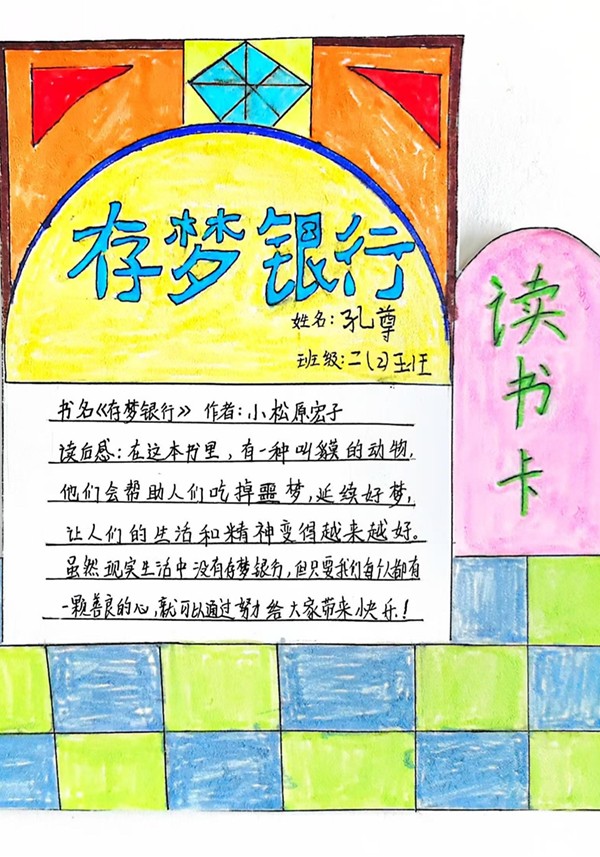 存梦银行
姓名:孔尊
班级:二(2)班
读书卡
书名《存梦银行》 作者:小松原宏子
读后感:在这本书里,有一种叫貘的动物,
他们会帮助人们吃掉噩梦,延续好梦,
让人们的生活和精神变得越来越好。
虽然现实生活中没有存梦银行,但只要我们每个人都有
一颗善良的心,就可以通过努力给大家带来快乐!